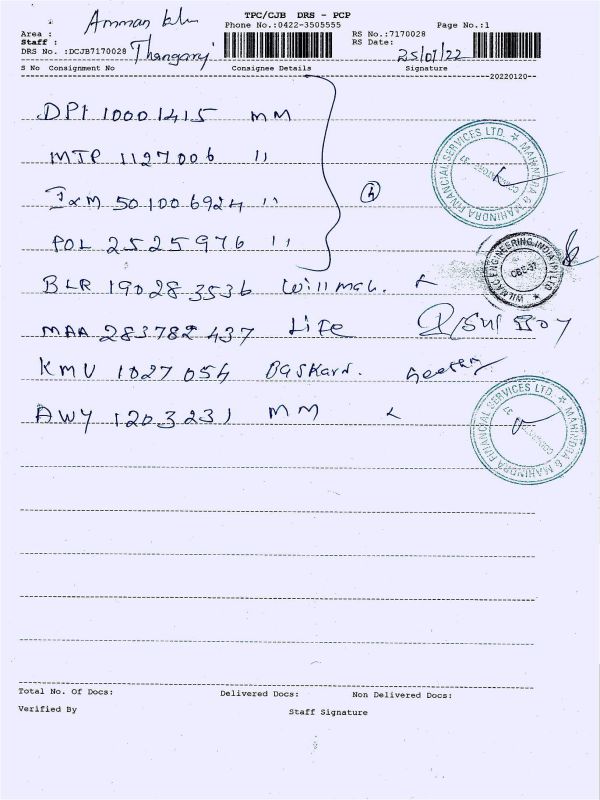 TPC/CJB DRS - PCP
Phone No.:0422-3505555 Page No.:1
Area : Amman
Staff : Thangaraj
RS No.:7170028
RS Date: 25/01/22
DRS No. :DCJB7170028
S No Consignment No Consignee Details Signature
20220120
DPI 10001415 MM
MTP 1127006 11
IXM 501006924 11
POL 2525976 11
4
BLR 190283536 Willmak.
MAA 283782437 Life
KMU 1027054 Baskard.
AWY 1203231 MM
MAHINDRA & MAHINDRA FINANCIAL SERVICES LTD.
COIMBATORE-37
WILMAC ENGINEERING INDIA (P) LTD
CBE-37
MAHINDRA & MAHINDRA FINANCIAL SERVICES LTD.
COIMBATORE-37
Total No. Of Docs: Delivered Docs: Non Delivered Docs:
Verified By Staff Signature